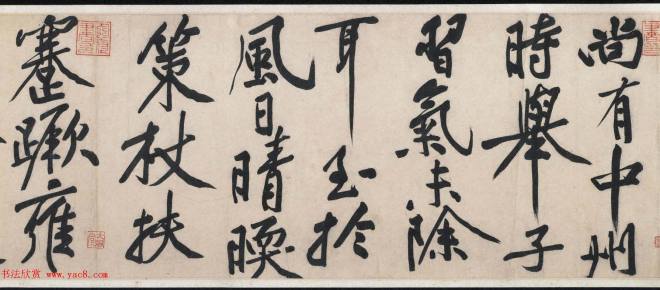 尚有中州
時舉子
習氣未除
耳至於
風日晴暖
策杖扶
蹇蹶雍
书法欣赏 www.yac8.com